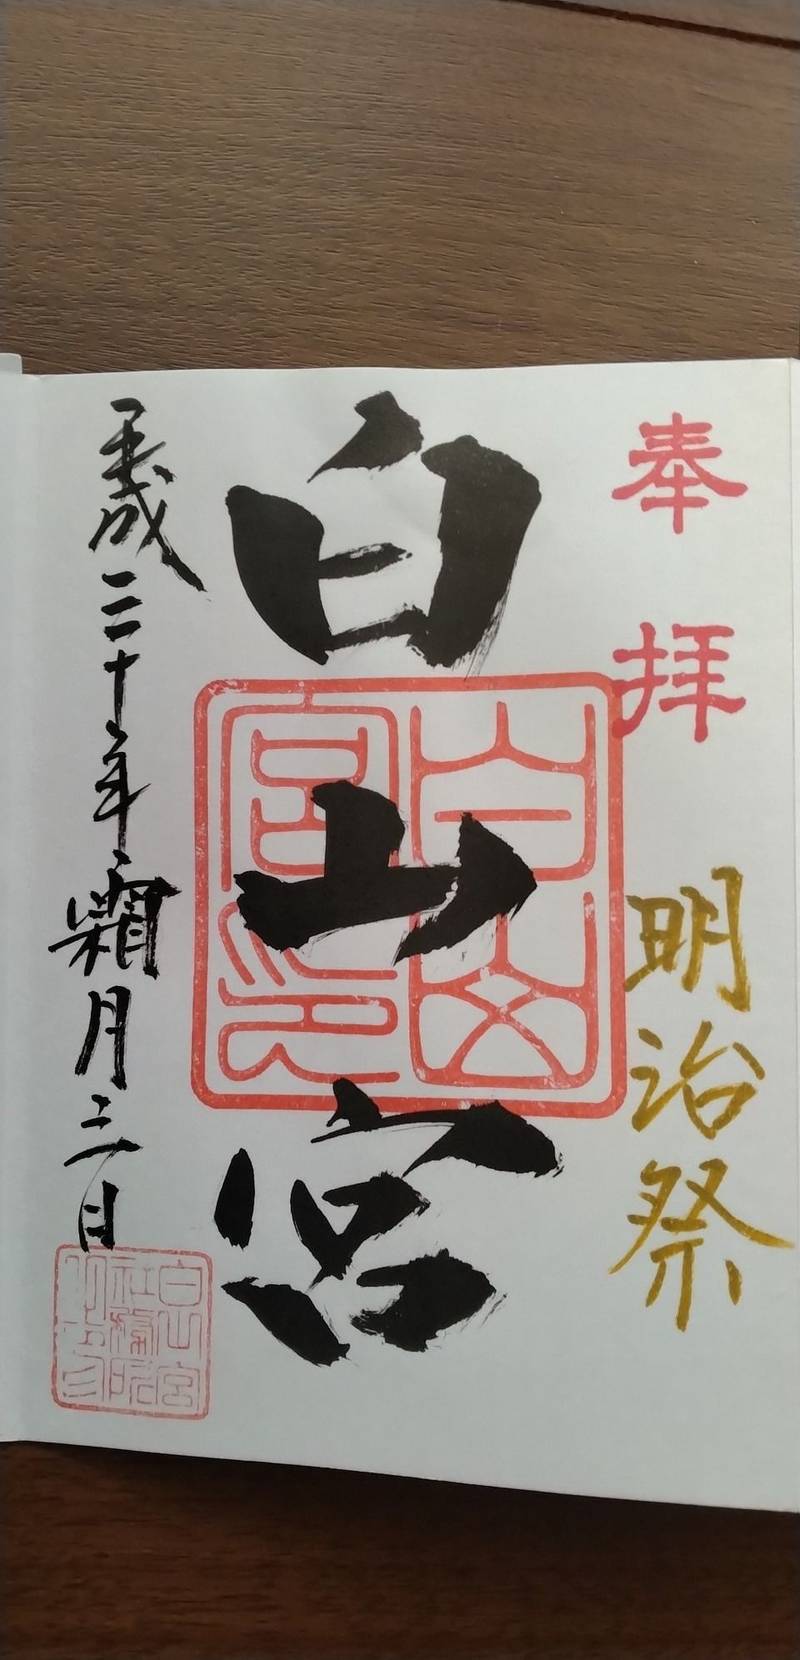 奉拝
明治祭
白山宮
白山宮印
平成三十年霜月三日
白山宮